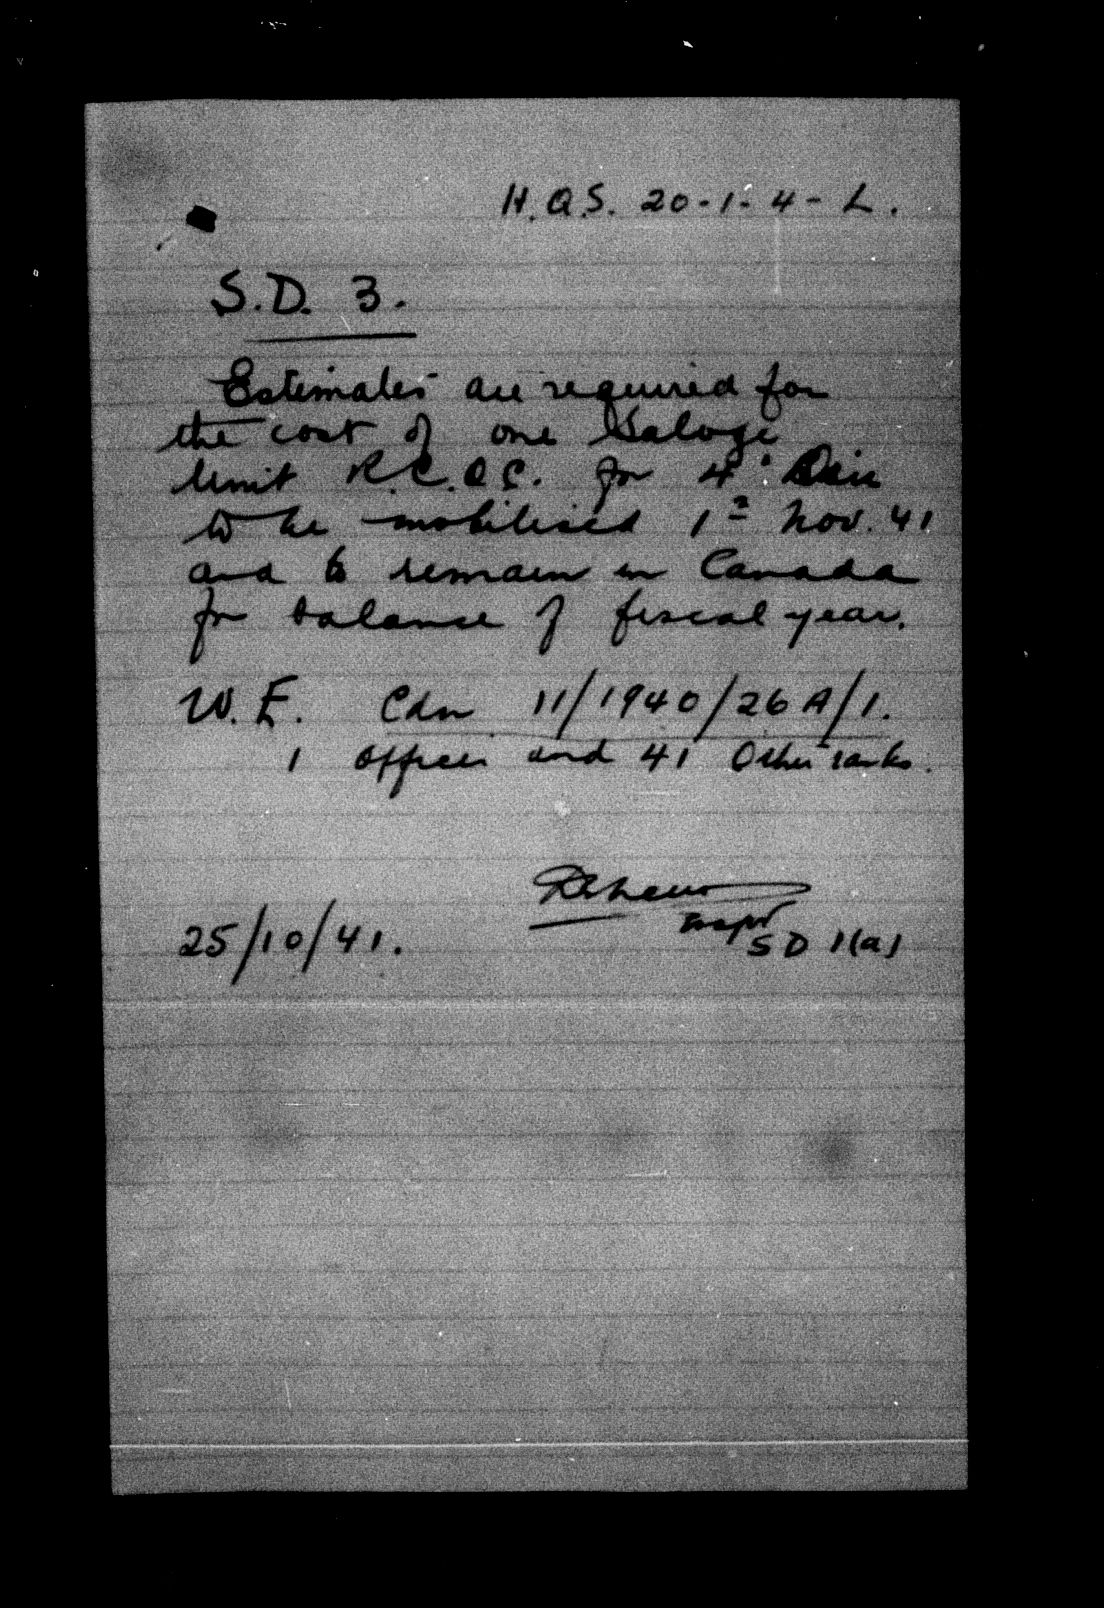 H.Q.S. 20-1-4-L.
S.D. 3.
Estimates are required for
the cost of one Salvage
Unit R.C.O.C. for 4 Div
to be mobilised 1st Nov. 41
and to remain in Canada
for balance of fiscal year.
W.E. Cdn 11/1940/26 A/1.
1 Officer and 41 Other ranks.
Major
25/10/41. S D 1(a)